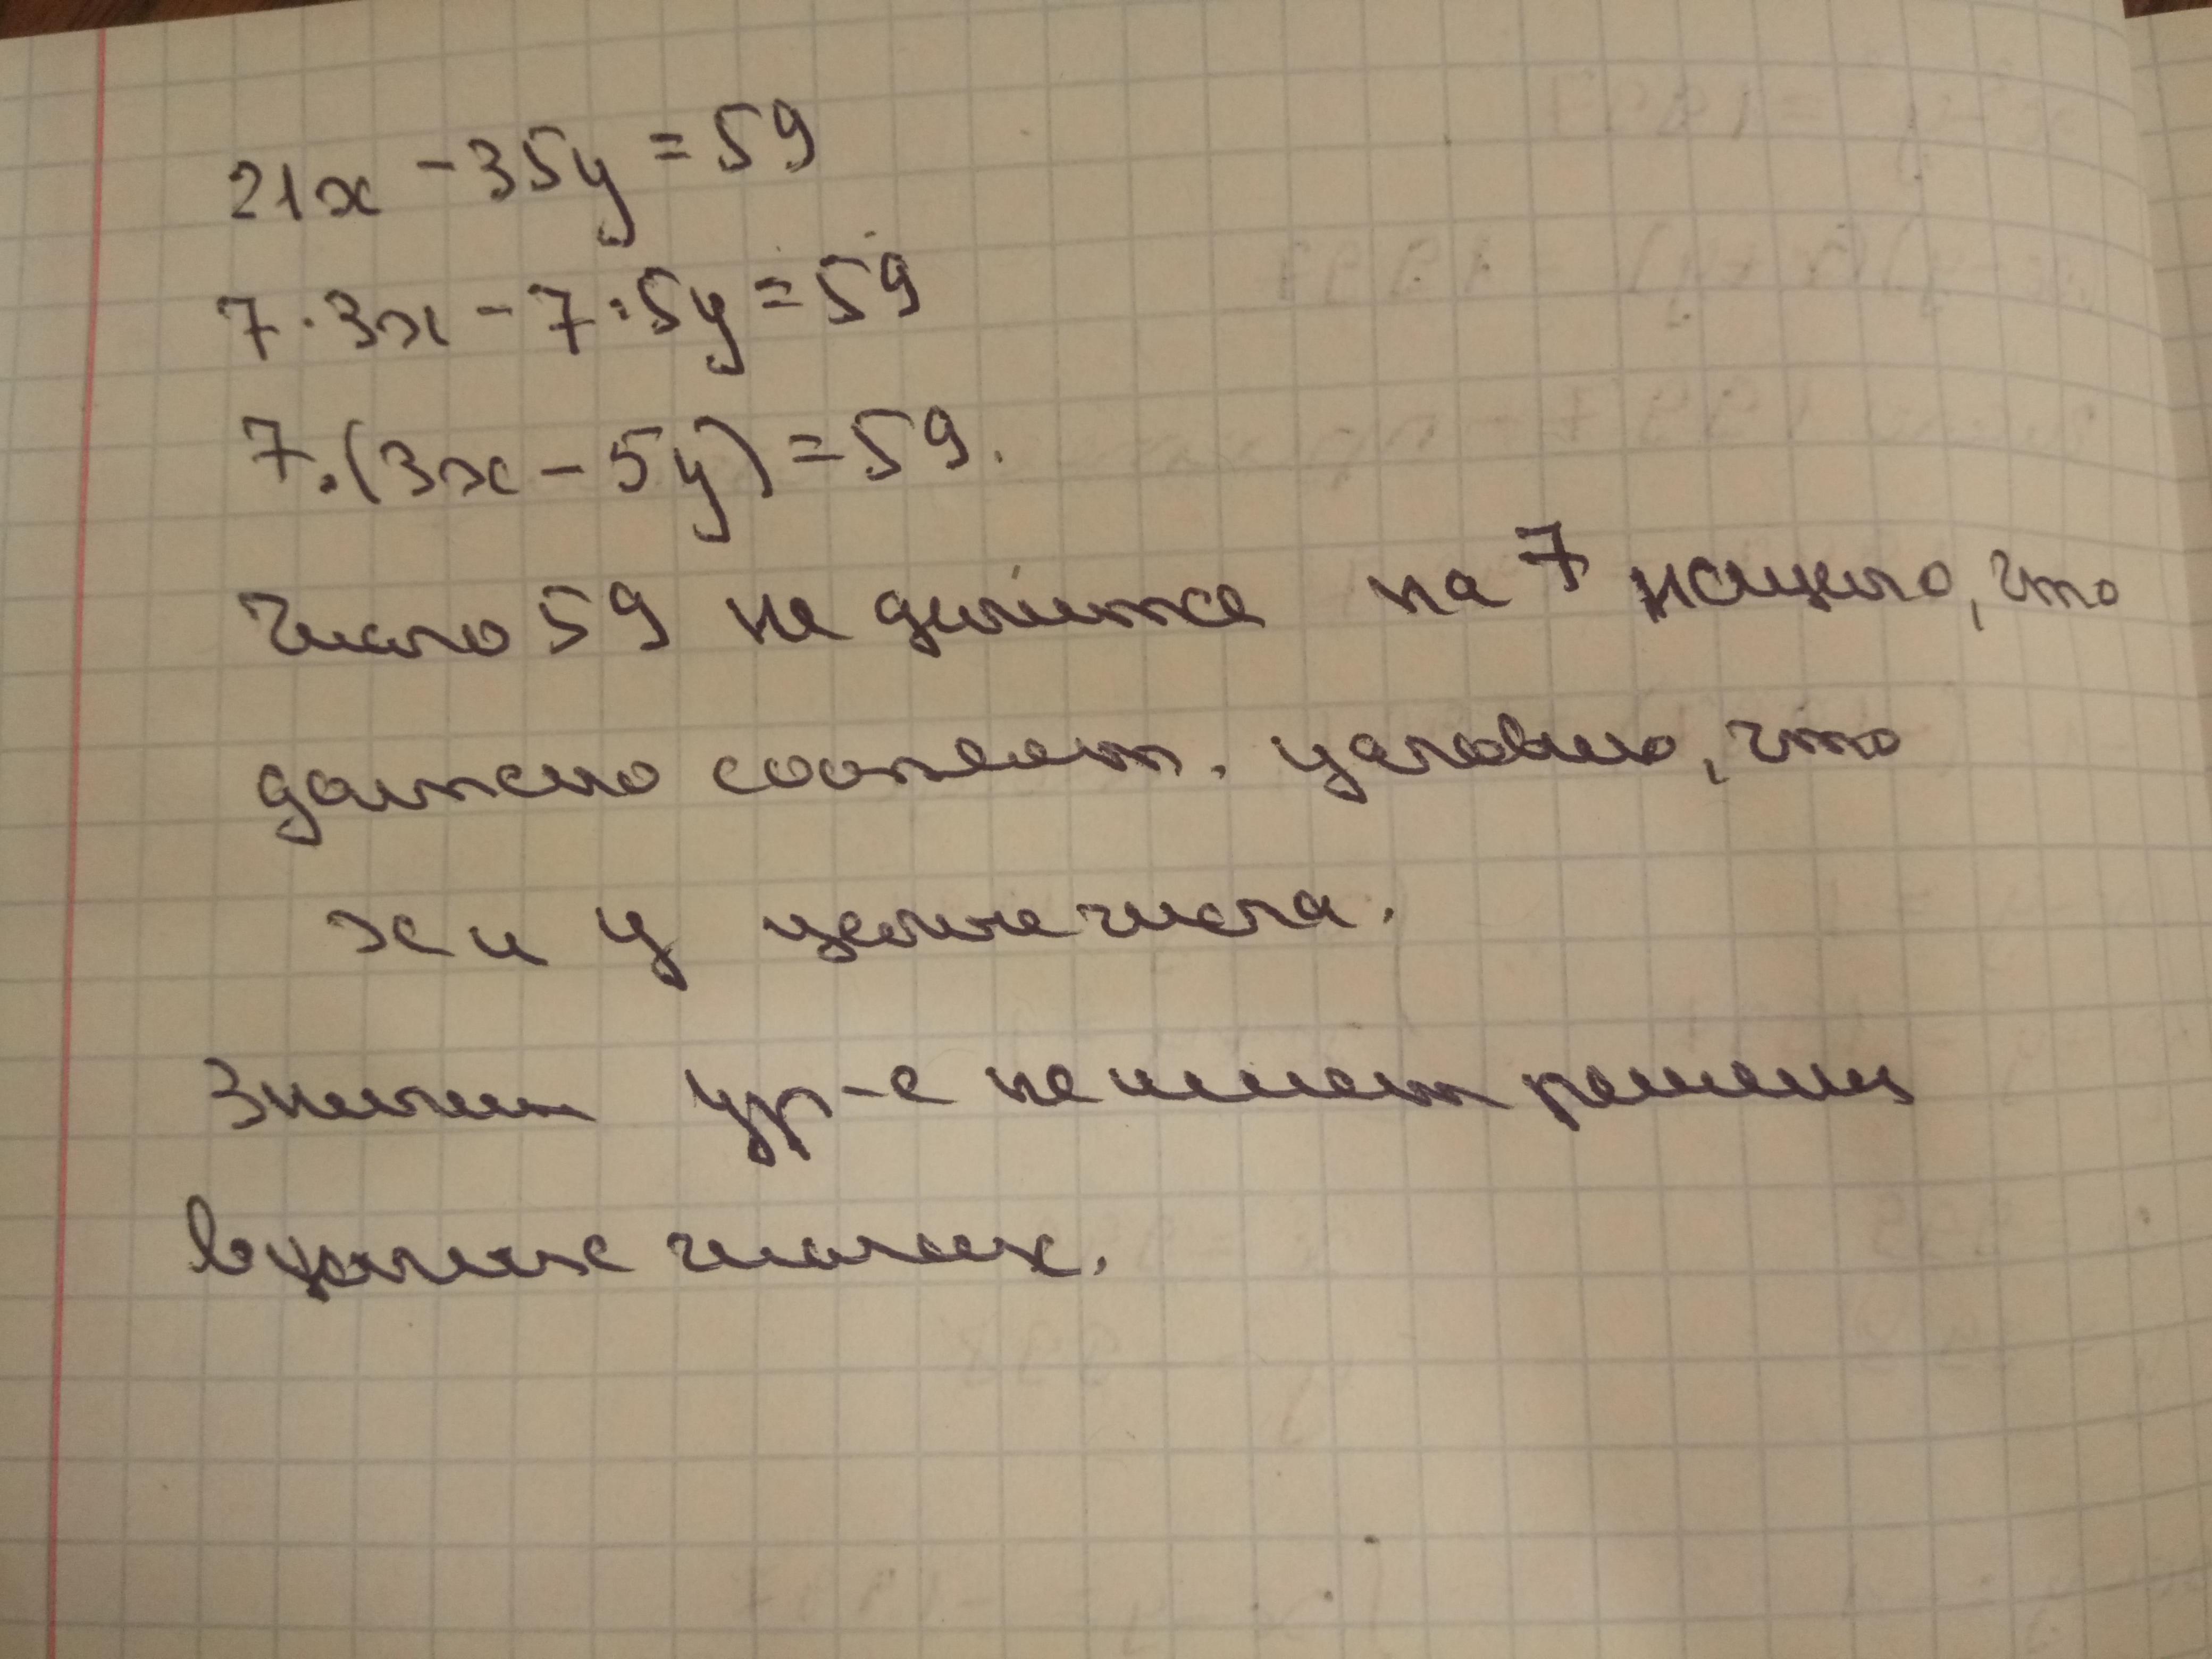 21x - 35y = 59
7·3x - 7·5y = 59
7·(3x - 5y) = 59.
Число 59 не делится на 7 нацело, что
должно соответ. условию, что
x и y целые числа.
Значит ур-е не имеет решения
в целых числах.